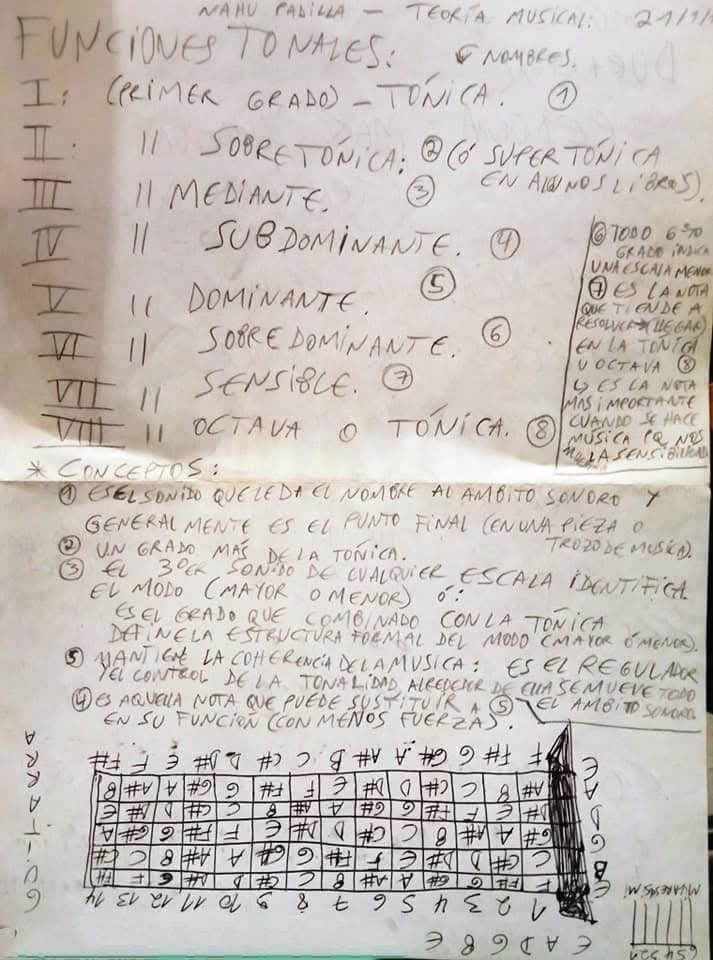 NAHU PADILLA - TEORÍA MUSICAL: 21/1/1
FUNCIONES TONALES: NOMBRES.
I: (PRIMER GRADO) - TÓNICA. ①
II: " SOBRETÓNICA: ② (Ó SUPERTÓNICA
EN ALGUNOS LIBROS).
III " MEDIANTE. ③
IV " SUBDOMINANTE. ④
V " DOMINANTE. ⑤
VI " SOBREDOMINANTE. ⑥
VII " SENSIBLE. ⑦
VIII " OCTAVA O TÓNICA. ⑧
⑥ TODO 6sto
GRADO INDICA
UNA ESCALA MENOR
⑦ ES LA NOTA
QUE TIENDE A
RESOLVER (LLEGAR)
EN LA TÓNICA
U OCTAVA ⑧
↳ ES LA NOTA
MAS IMPORTANTE
CUANDO SE HACE
MÚSICA PQ NOS
LA
* CONCEPTOS:
① ES EL SONIDO QUE LE DA EL NOMBRE AL AMBITO SONORO Y
GENERALMENTE ES EL PUNTO FINAL (EN UNA PIEZA O
TROZO DE MUSICA).
② UN GRADO MÁS DE LA TÓNICA.
③ EL 3ºER SONIDO DE CUALQUIER ESCALA IDENTIFICA
EL MODO (MAYOR O MENOR) Ó:
ES EL GRADO QUE COMBINADO CON LA TÓNICA
DEFINE LA ESTRUCTURA FORMAL DEL MODO (MAYOR Ó MENOR).
⑤ MANTIENE LA COHERENCIA DE LA MUSICA: ES EL REGULADOR
Y EL CONTROL DE LA TONALIDAD, ALREDEDOR DE ELLA SE MUEVE TODO
EL AMBITO SONORO
④ ES AQUELLA NOTA QUE PUEDE SUSTITUIR A ⑤
EN SU FUNCIÓN (CON MENOS FUERZA).
GUITARRA
E A D G B E
F F# G G# A A# B C C# D D# E F F#
A# B C C# D D# E F F# G G# A A# B
D# E F F# G G# A A# B C C# D D# E
G# A A# B C C# D D# E F F# G G# A
C C# D D# E F F# G G# A A# B C C#
F F# G G# A A# B C C# D D# E F F#
1 2 3 4 5 6 7 8 9 10 11 12 13 14
E A D G B E
6 5 4 3 2 1